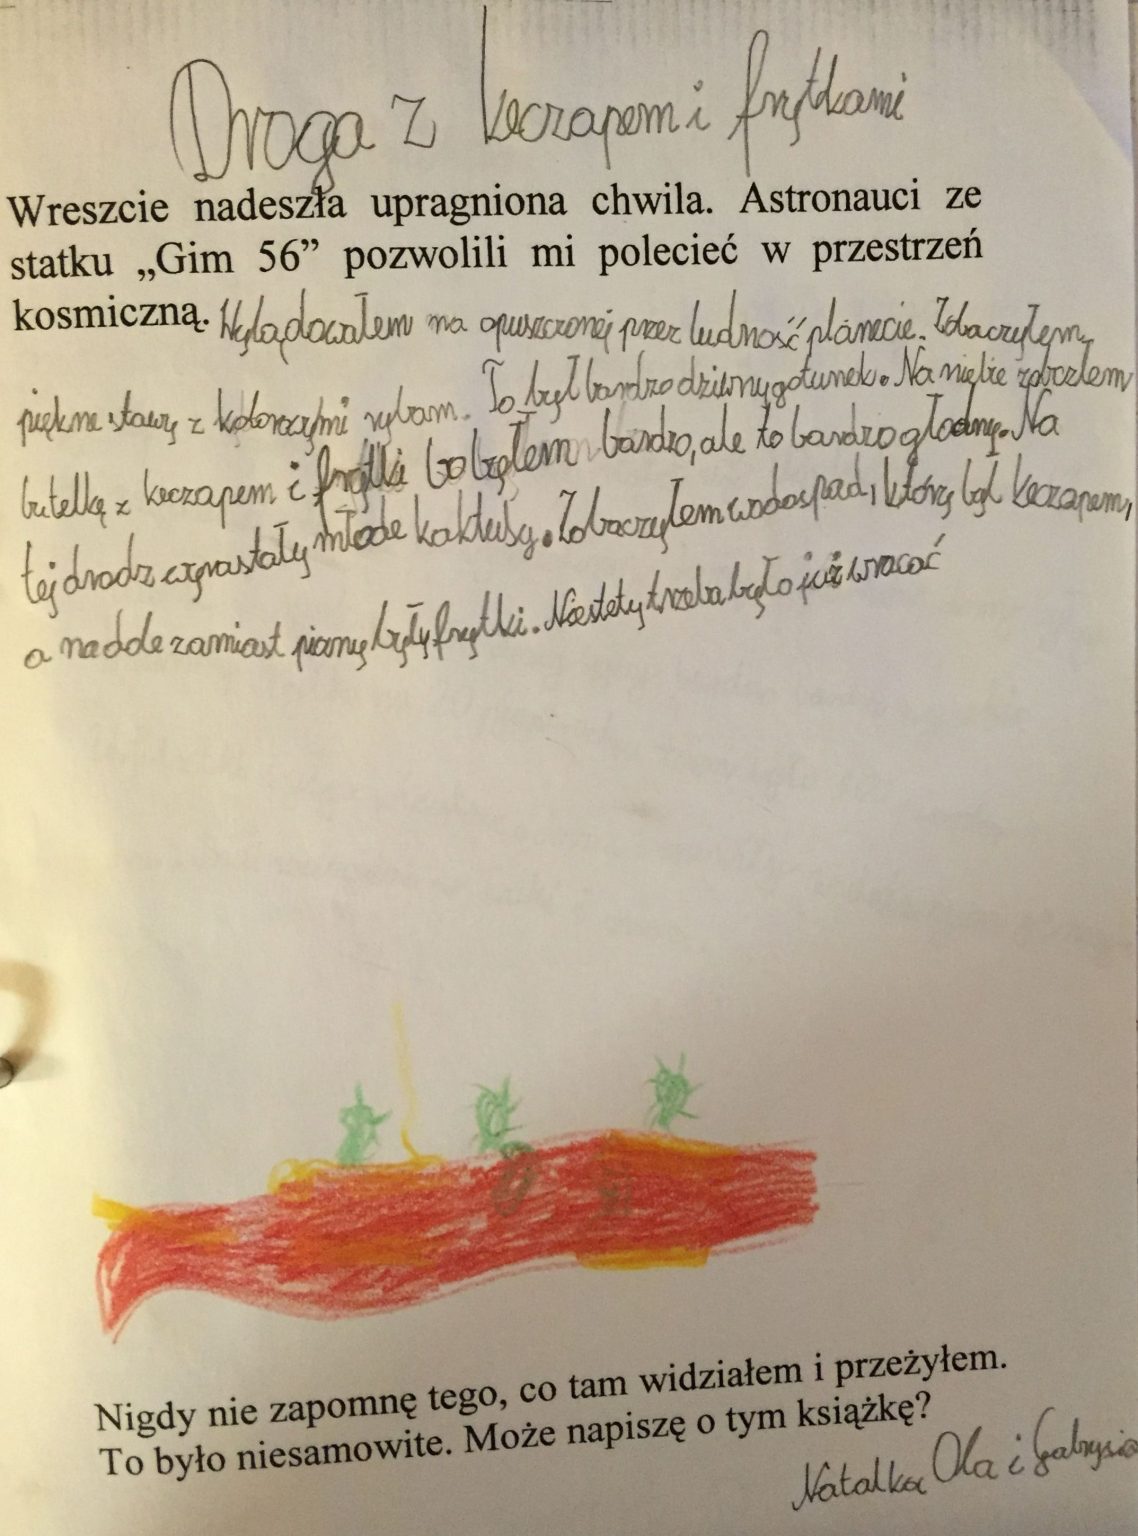 Droga z keczapem i frytkami
Wreszcie nadeszła upragniona chwila. Astronauci ze
statku „Gim 56” pozwolili mi polecieć w przestrzeń
kosmiczną. Wylądowałem na opuszczonej przez ludność planecie. Zobaczyłem
piękne stawy z kolorozymi rybam. To był bardzo dziwny gotunek. Na niebie zoboczłem
butelkę z keczapem i frytki bo byłem bardzo, ale to bardzo głodny. Na
tej drodz wyrastały młode kaktusy. Zobaczyłem wodospad, który był keczapem,
a na dole zamiast piany były frytki. Niestety trzeba było już wracać
Nigdy nie zapomnę tego, co tam widziałem i przeżyłem.
To było niesamowite. Może napiszę o tym książkę?
Natalka Ola i Gabrysia